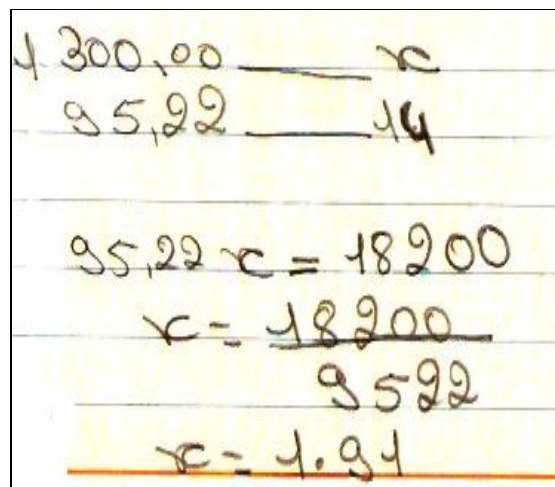 1300,00 ____ x
95,22 ____ 14
95,22 x = 18200
x = 18200
9522
x = 1.91